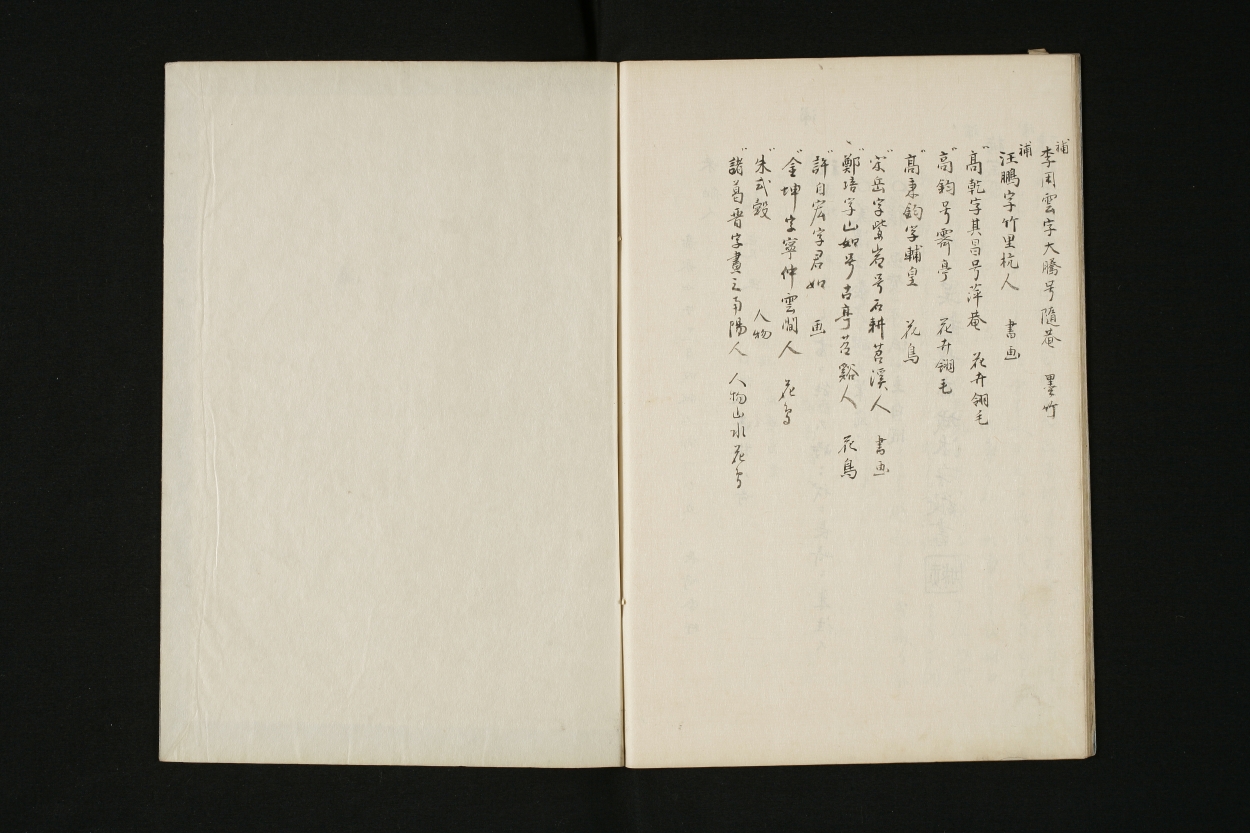 補 李用雲字大騰号隨菴 墨竹
補 汪鵬字竹里杭人 書画
〃 高乾字其昌号萍菴 花卉翎毛
〃 高鈞号霽亭 花卉翎毛
〃 高秉鈞字輔皇 花鳥
〃 宋岳字紫岩号石耕苕溪人 書画
〃 鄭培字山如号古亭苕谿人 花鳥
〃 許自宏字君如 画
〃 金坤字寧仲雲間人 花鳥
〃 朱式穀 人物
〃 諸葛晋字晝三南陽人 人物山水花鳥